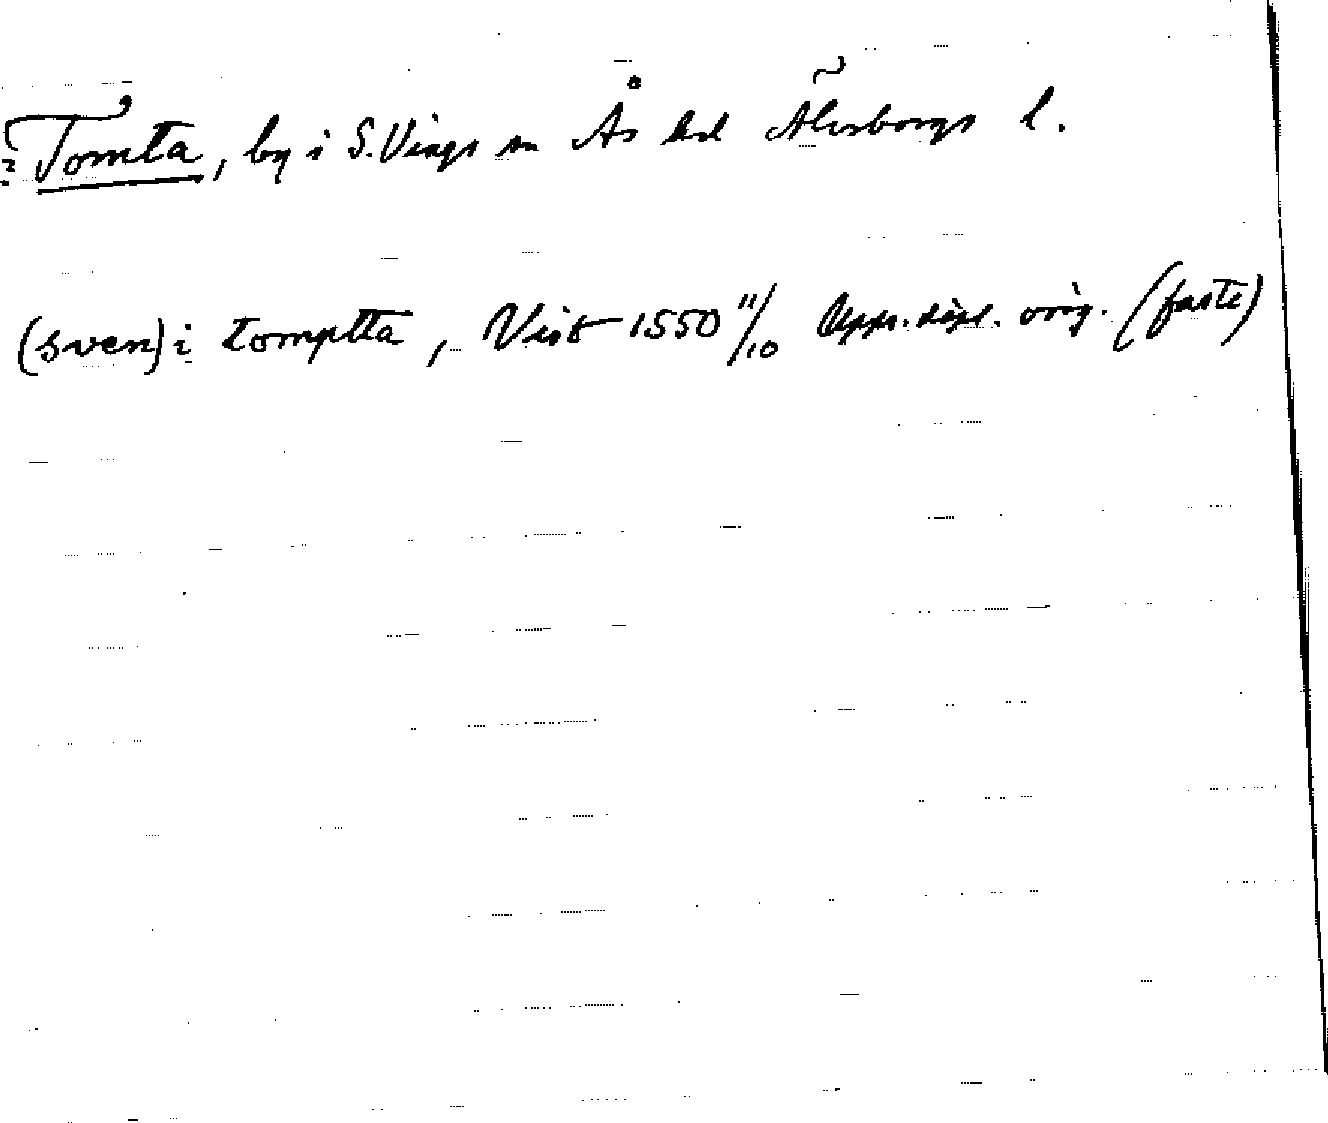 Tomta, by i S. Vings sn Ås hd Älvsborgs l.
(sven) i tomptta, Vist 1550 11/10 Upps. dipl. orig. (faste)